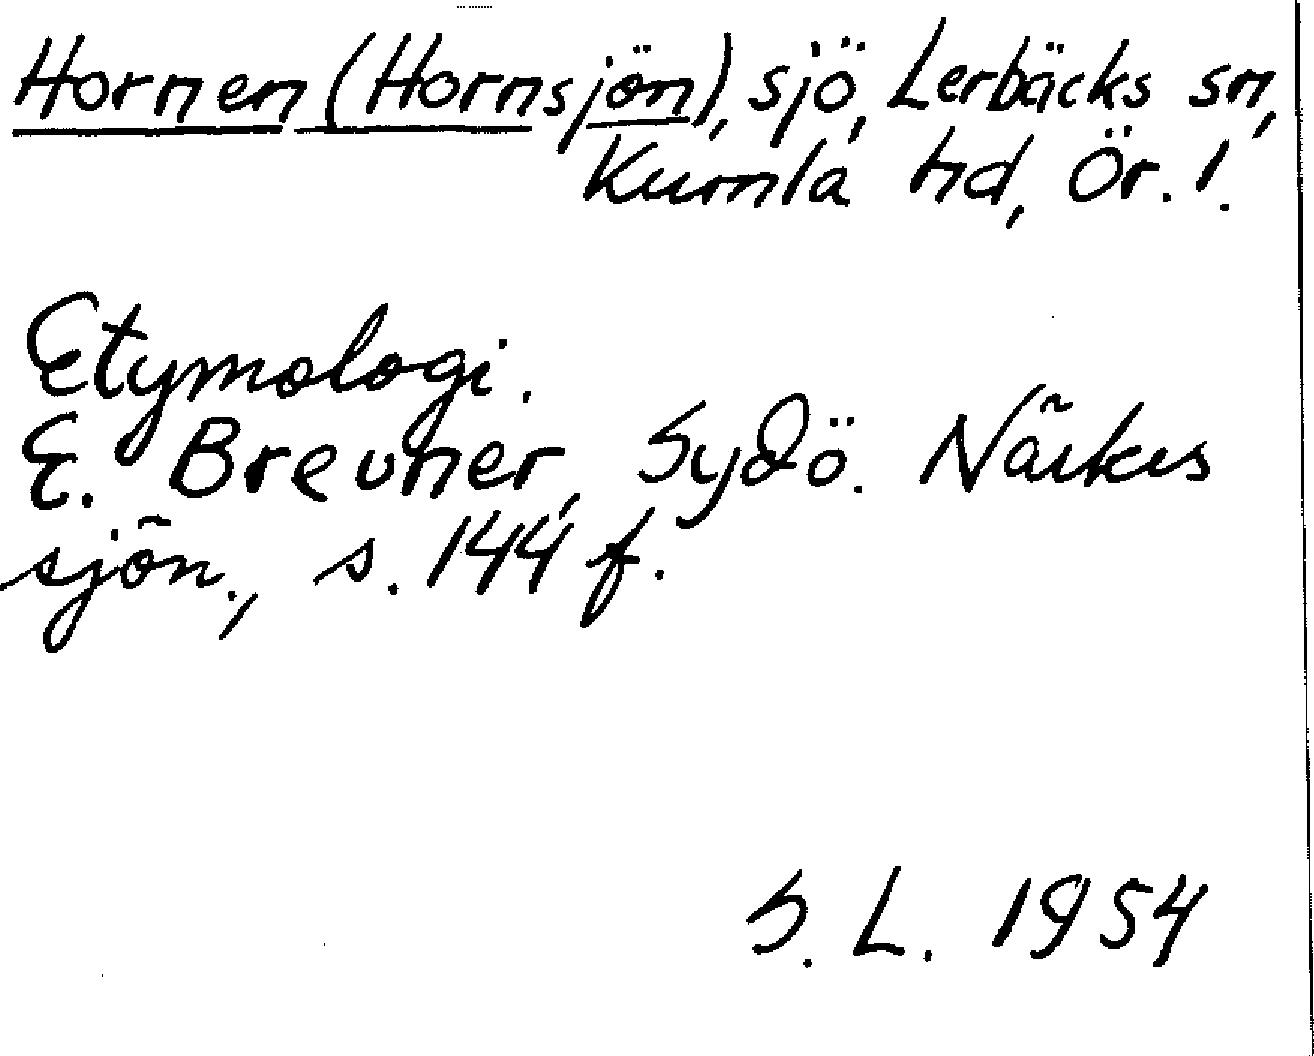 Hornen (Hornsjön), sjö, Lerbäcks sn,
Kumla hd, Ör. l.
Etymologi.
E. Brevner, Sydö. Närkes
sjön., s. 144 f.
S. L. 1954